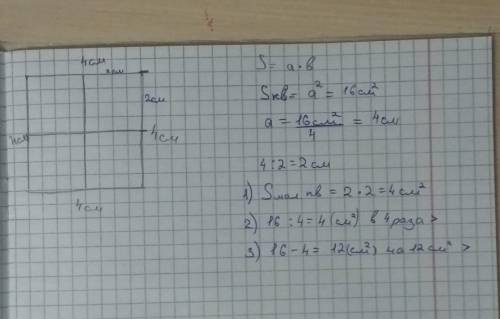 4см
2см
2см
4см
4см
4см
S = a · b
Sкв = a² = 16см²
a = 16см² / 4 = 4см
4 : 2 = 2 см
1) Sмал кв = 2 · 2 = 4 см²
2) 16 : 4 = 4 (см²) в 4 раза >
3) 16 - 4 = 12 (см²) на 12 см² >